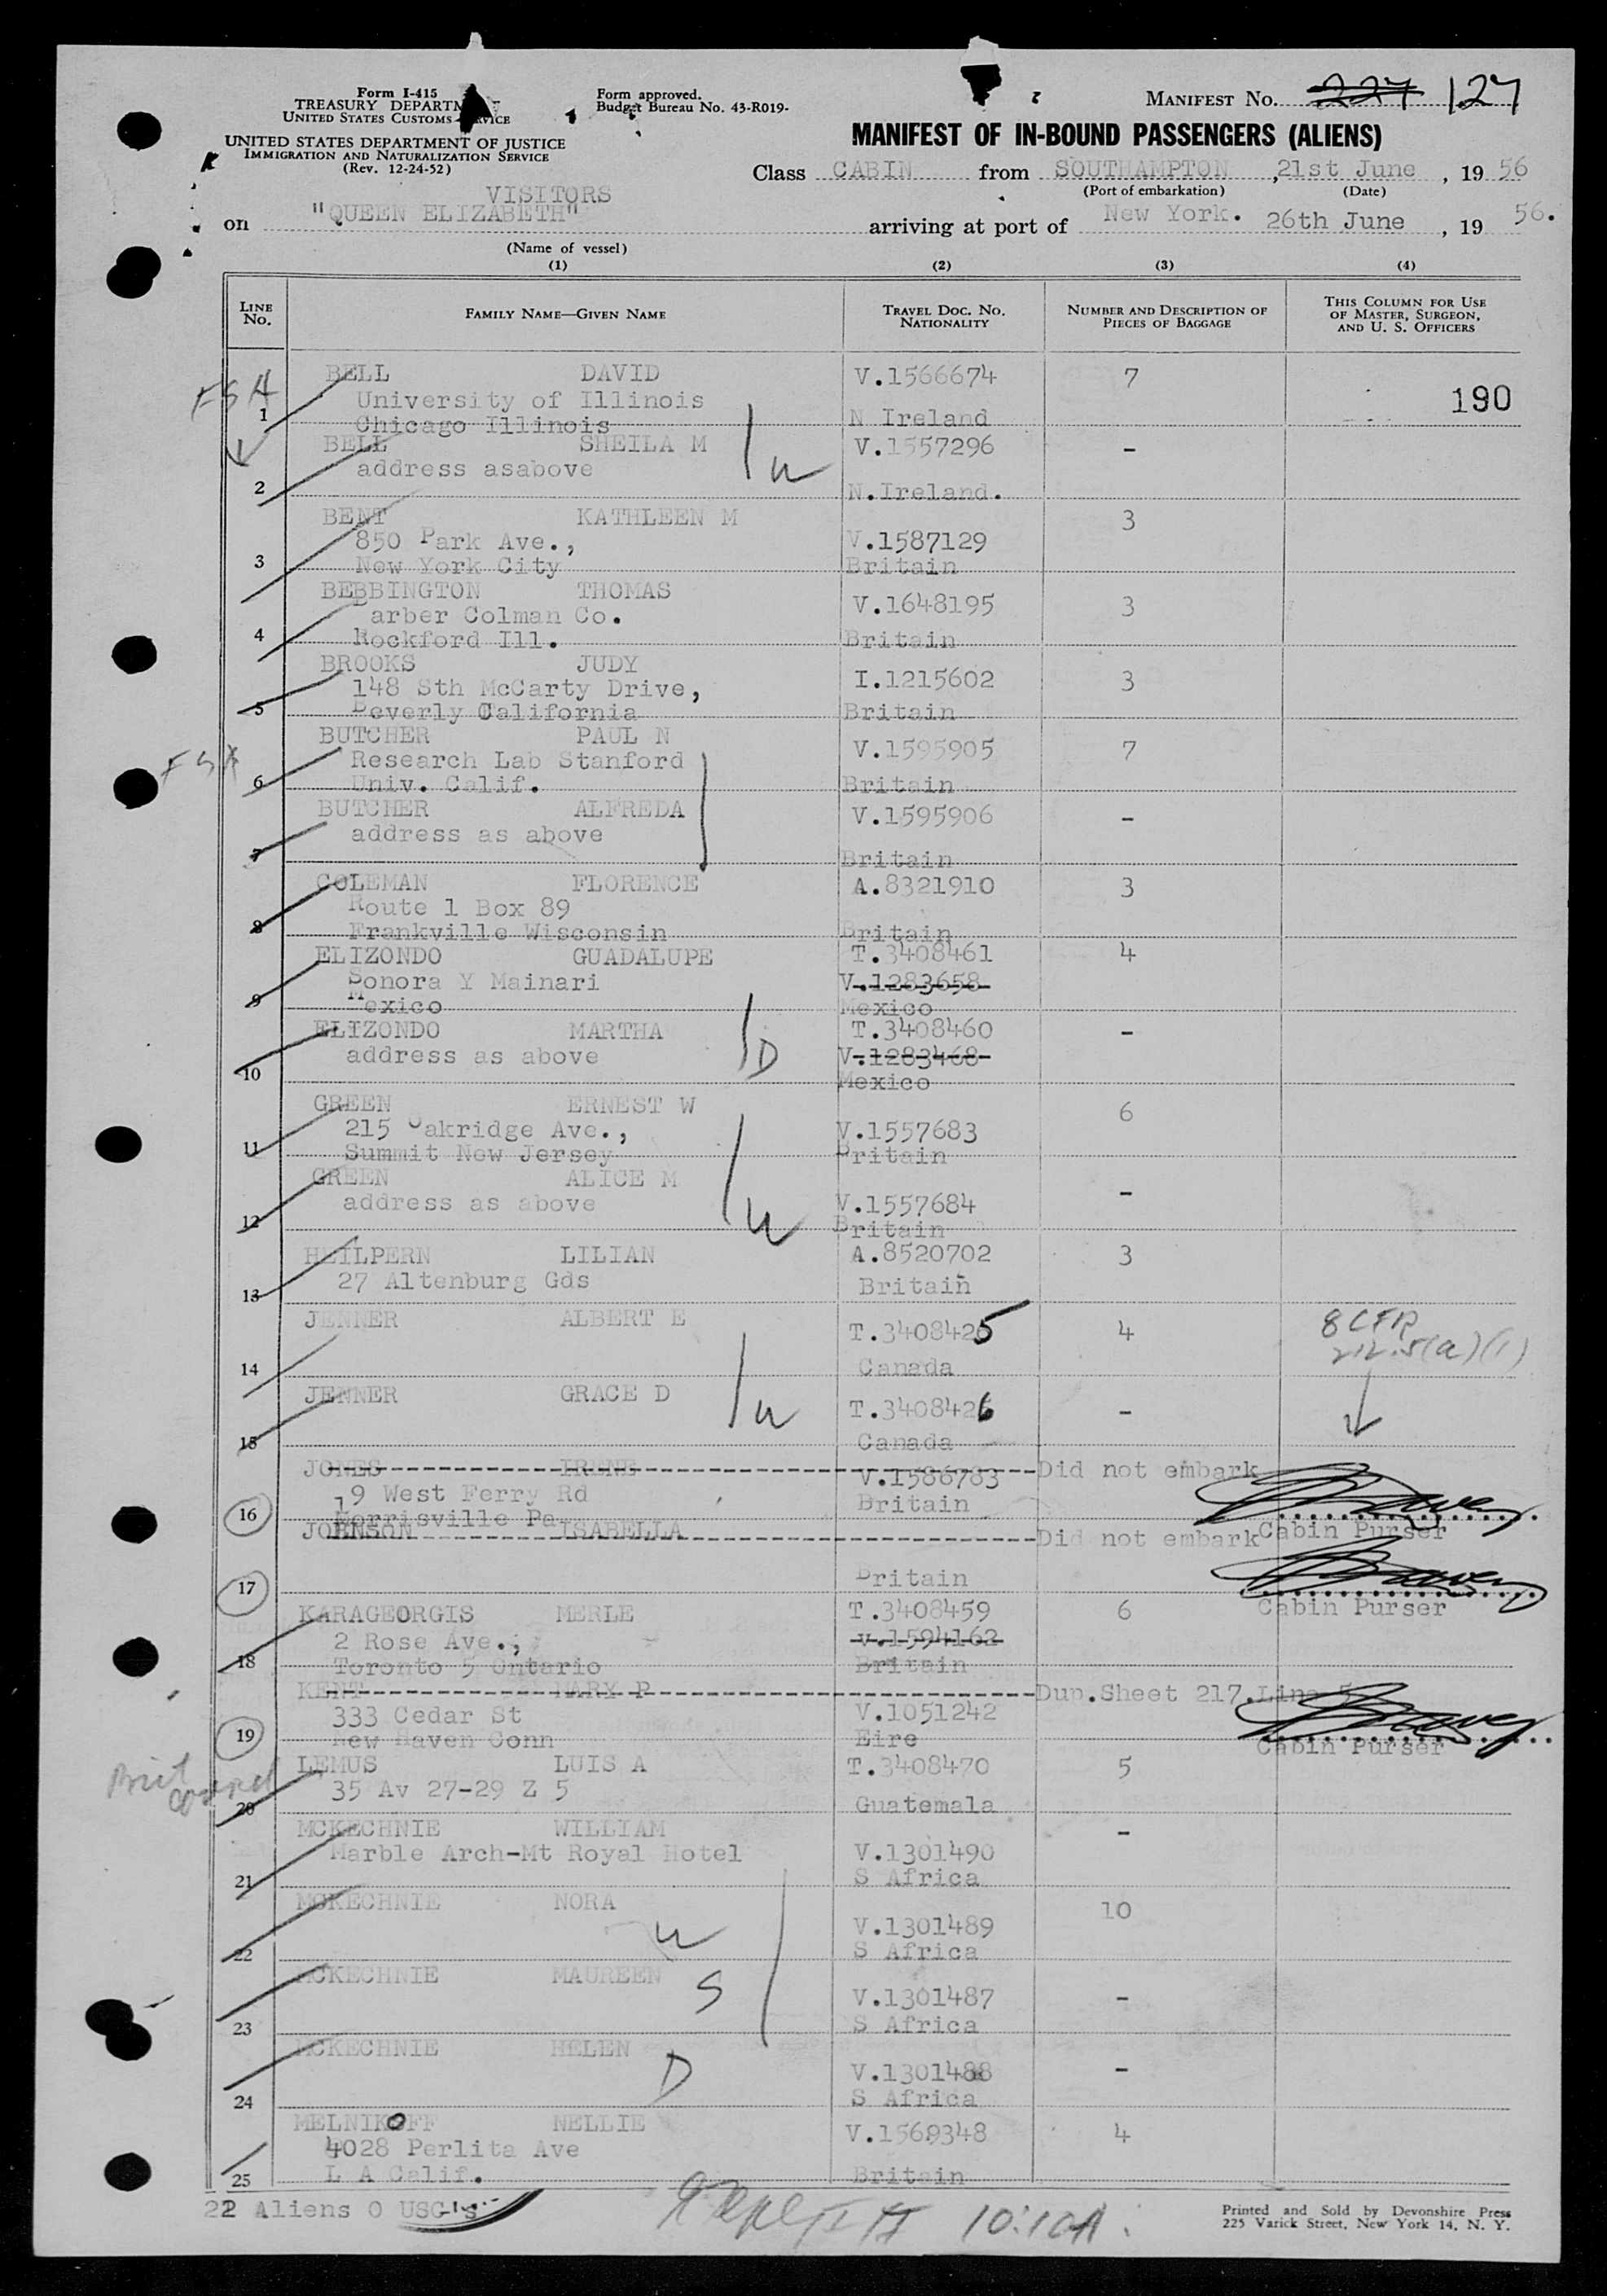 Form I-415
TREASURY DEPARTM
UNITED STATES CUSTOMS SERVICE
UNITED STATES DEPARTMENT OF JUSTICE
IMMIGRATION AND NATURALIZATION SERVICE
(Rev. 12-24-52)
Form approved.
Budget Bureau No. 43-R019-
MANIFEST No. 227 127
MANIFEST OF IN-BOUND PASSENGERS (ALIENS)
Class CABIN from SOUTHAMPTON, 21st June, 19 56
(Port of embarkation) (Date)
VISITORS
on "QUEEN ELIZABETH" arriving at port of New York. 26th June, 19 56.
(Name of vessel)
(1) (2) (3) (4)
LINE No. FAMILY NAME—GIVEN NAME TRAVEL DOC. NO. NATIONALITY NUMBER AND DESCRIPTION OF PIECES OF BAGGAGE THIS COLUMN FOR USE OF MASTER, SURGEON, AND U. S. OFFICERS
FSA
BELL DAVID V.1566674 7
University of Illinois 190
1 Chicago Illinois N Ireland
BELL SHEILA M V.1557296 -
address asabove W
2 N.Ireland.
BENT KATHLEEN M 3
850 Park Ave., V.1587129
3 New York City Britain
BEBBINGTON THOMAS V.1648195 3
Barber Colman Co.
4 Rockford Ill. Britain
BROOKS JUDY I.1215602 3
148 Sth McCarty Drive,
5 Beverly California Britain
BUTCHER PAUL N V.1595905 7
FSA Research Lab Stanford
6 Univ. Calif. Britain
BUTCHER ALFREDA V.1595906 -
address as above
7 Britain
COLEMAN FLORENCE A.8321910 3
Route 1 Box 89
8 Frankville Wisconsin Britain
ELIZONDO GUADALUPE T.3408461 4
Sonora Y Mainari V.1283658
9 Mexico Mexico
ELIZONDO MARTHA T.3408460 -
address as above D V.1283468
10 Mexico
GREEN ERNEST W 6
215 Oakridge Ave., V.1557683
11 Summit New Jersey Britain
GREEN ALICE M -
address as above W V.1557684
12 Britain
HEILPERN LILIAN A.8520702 3
27 Altenburg Gds Britain
13
JENNER ALBERT E T.3408425 4 8 CFR
212.5(a)(1)
14 Canada
JENNER GRACE D W T.3408426 -
15 Canada
JONES IRENE V.1586783 Did not embark
19 West Ferry Rd Britain
16 Morrisville Pa
Cabin Purser
JOHNSON ISABELLA Did not embark
17 Britain
Cabin Purser
KARAGEORGIS MERLE T.3408459 6
2 Rose Ave., V.1594162
18 Toronto 5 Ontario Britain
KENT MARY P Dup.Sheet 217.Line 5
333 Cedar St V.1051242
19 New Haven Conn Eire
Cabin Purser
LEMUS LUIS A T.3408470 5
35 Av 27-29 Z 5
20 Guatemala
MCKECHNIE WILLIAM -
Marble Arch-Mt Royal Hotel V.1301490
21 S Africa
MCKECHNIE NORA 10
W V.1301489
22 S Africa
MCKECHNIE MAUREEN S V.1301487 -
23 S Africa
MCKECHNIE HELEN D V.1301488 -
24 S Africa
MELNIKOFF NELLIE V.1569348 4
4028 Perlita Ave
25 L A Calif. Britain
22 Aliens 0 USC-is
10:10A.
Printed and Sold by Devonshire Press
225 Varick Street, New York 14, N. Y.